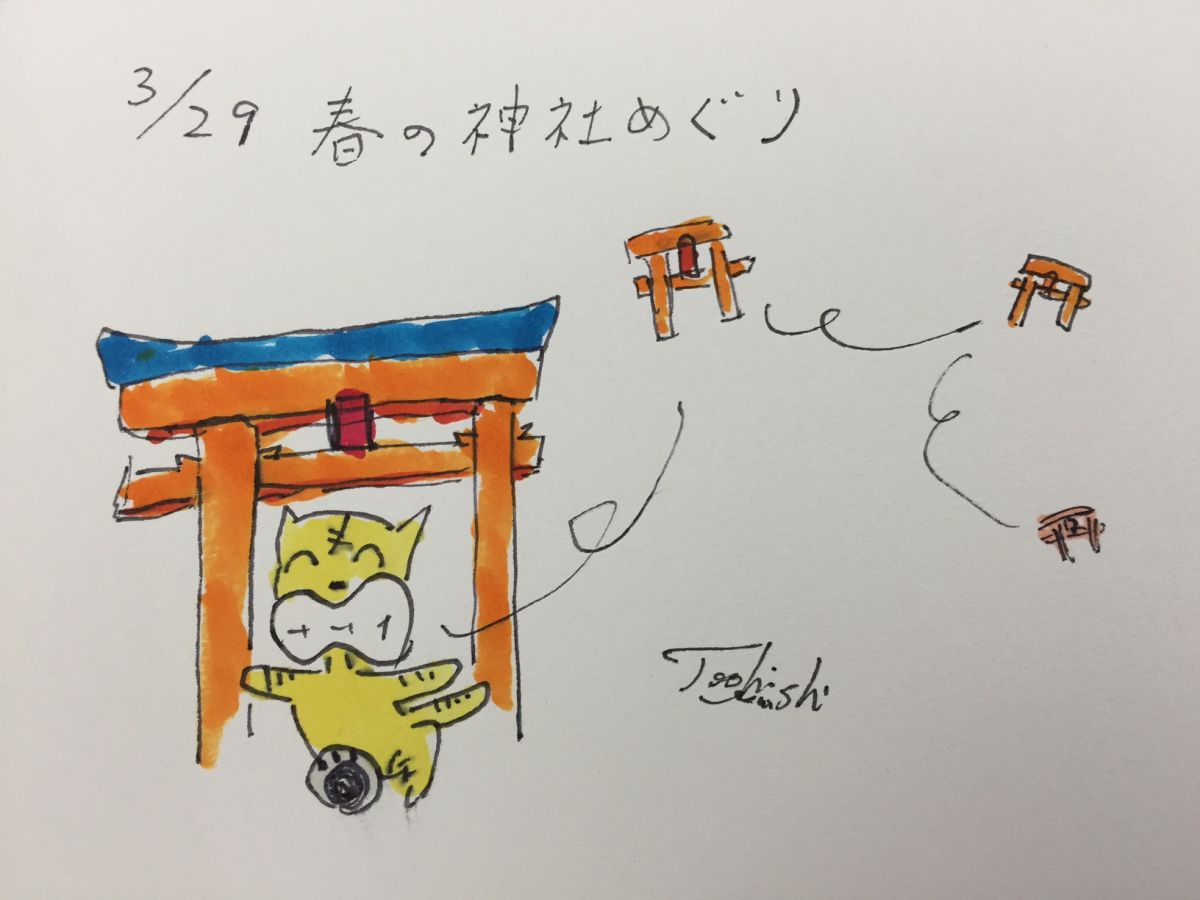 3/29 春の神社めぐり